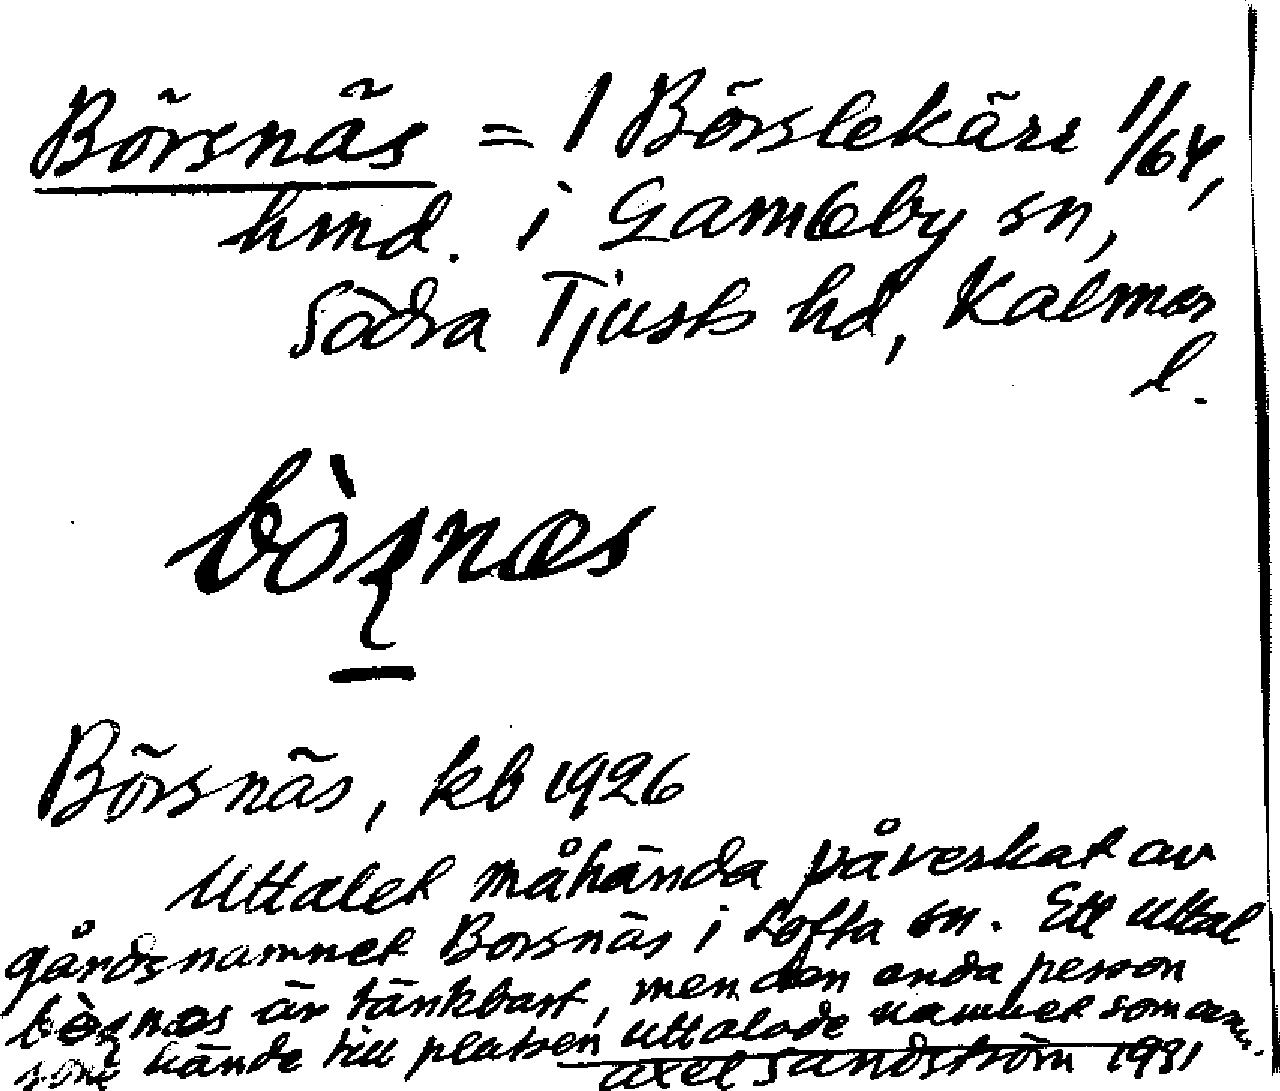 Börsnäs = 1 Börslekärr 1/64,
hmd. i Gamleby sn,
Södra Tjusts hd, Kalmar
l.
bòʂnäs
Börsnäs, kb 1926
Uttalet måhända påverkat av
gårdsnamnet Borsnäs i Lofta sn. Ett uttal
är tänkbart, men den enda person
som kände till platsen uttalade namnet som ovan.
Axel Sandström 1931